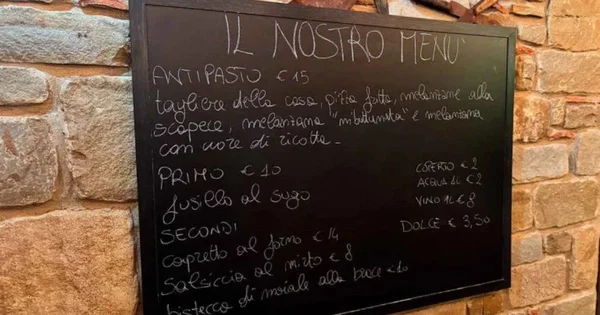 IL NOSTRO MENU'
ANTIPASTO € 15
tagliere della casa, pizza fritta, melanzane alla
scapece, melanzana "'mbuttunata" e melanzana
con cuore di ricotta.
PRIMO € 10
fusillo al sugo
SECONDI
capretto al forno € 14
salsiccia al mirto € 8
bistecca di maiale alla brace € 10
COPERTO € 2
ACQUA 1L € 2
VINO 1L € 8
DOLCE € 3,50